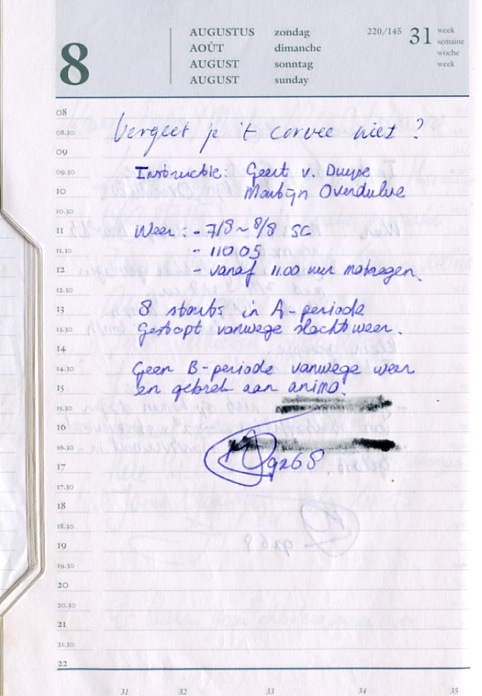 8
AUGUSTUS zondag
AOÛT dimanche
AUGUST sonntag
AUGUST sunday
220/145 31 week
semaine
woche
week
08
08.30 Vergeet je 't corvee niet?
09
09.30 Instructie: Geert v. Duyse
10 Martijn Overdulve
10.30
11 Weer: - 7/8 ~ 8/8 SC
11.30 - 110 05
12 - vanaf 11.00 uur motregen.
12.30
13 8 starts in A-periode
13.30 Gestopt vanwege slecht weer.
14
14.30 Geen B-periode vanwege weer
15 en gebrek aan animo.
15.30
16
16.30
17 ga68
17.30
18
18.30
19
19.30
20
20.30
21
21.30
22
31 32 33 34 35